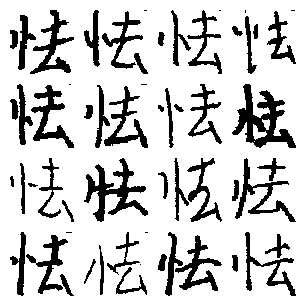 怯怯怯怯
怯怯怯怯
怯怯怯怯
怯怯怯怯